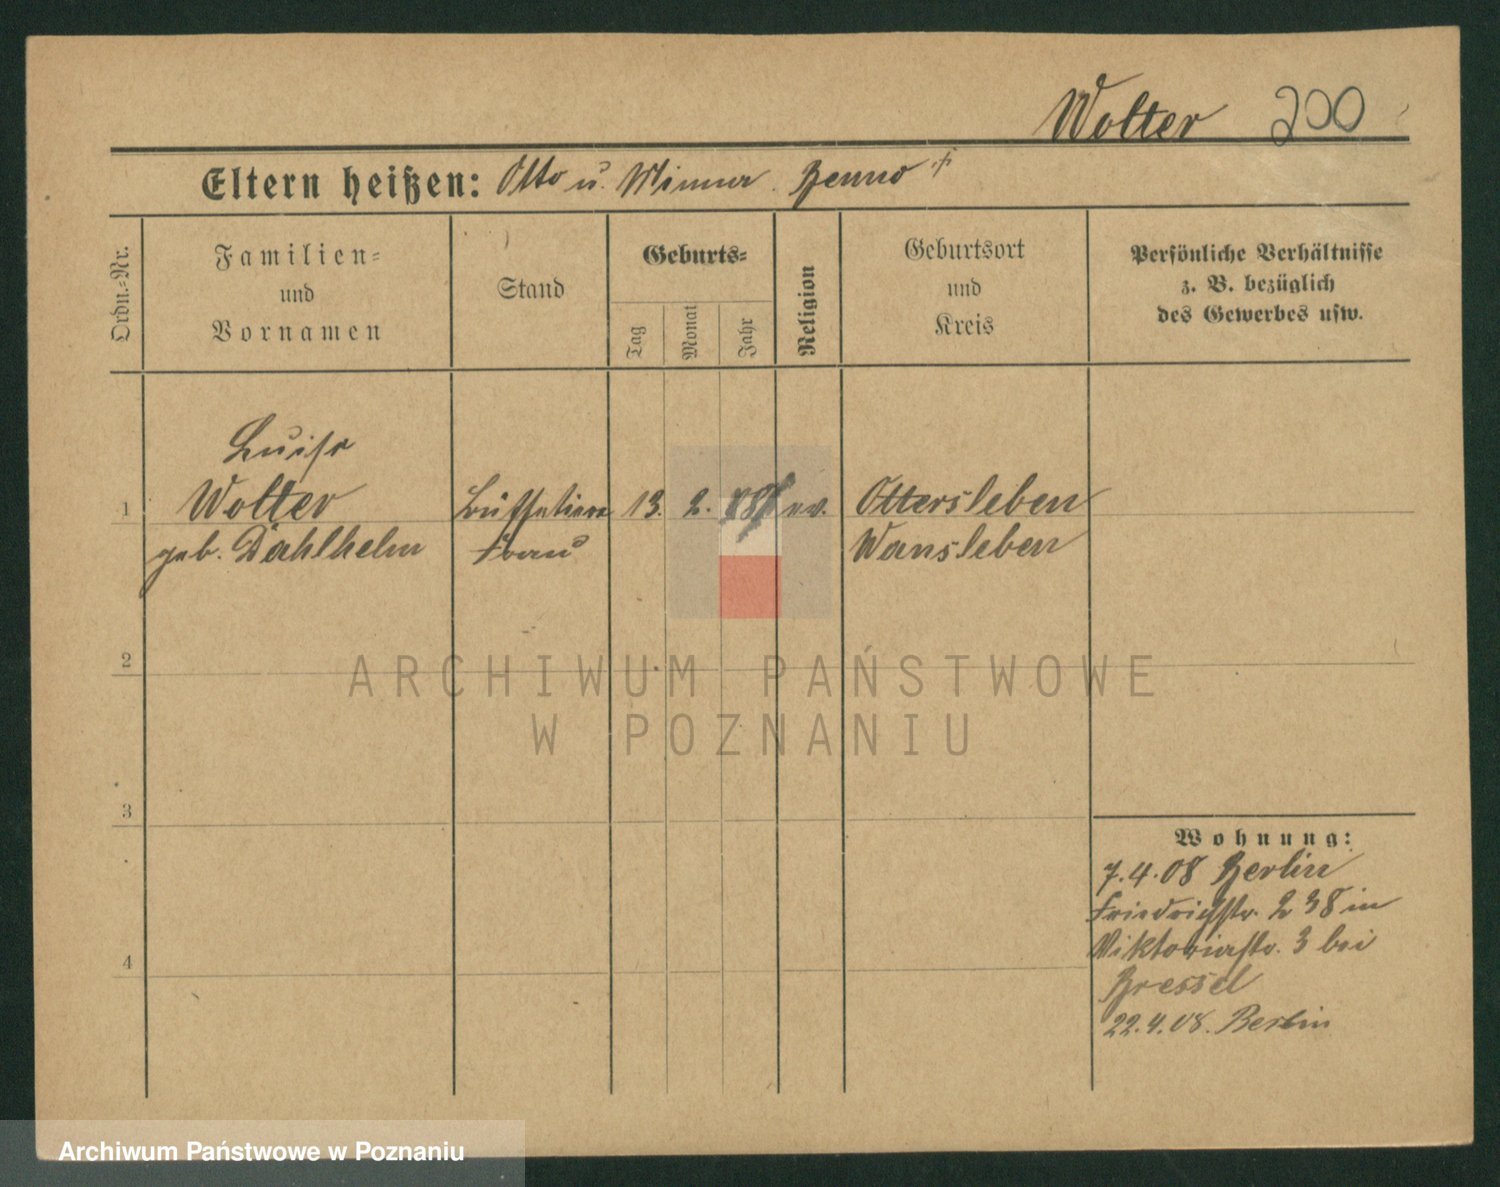 Wolter 200
Eltern heißen: Otto u. Minna Benno
Ordn.-Nr.
Familien-
und
Vornamen
Stand
Geburts-
Tag
Monat
Jahr
Religion
Geburtsort
und
Kreis
Persönliche Verhältnisse
z. B. bezüglich
des Gewerbes usw.
Luise
1 Wolter Büffetiere 13. 2. ev. Ottersleben
geb. Dahlhelm Frau Wansleben
2
ARCHIWUM PAŃSTWOWE
W POZNANIU
3
Wohnung:
7.4.08 Berlin
Friedrichstr. 238 in
Viktoriastr. 3 bei
4
Bressel
22.4.08. Berlin
Archiwum Państwowe w Poznaniu